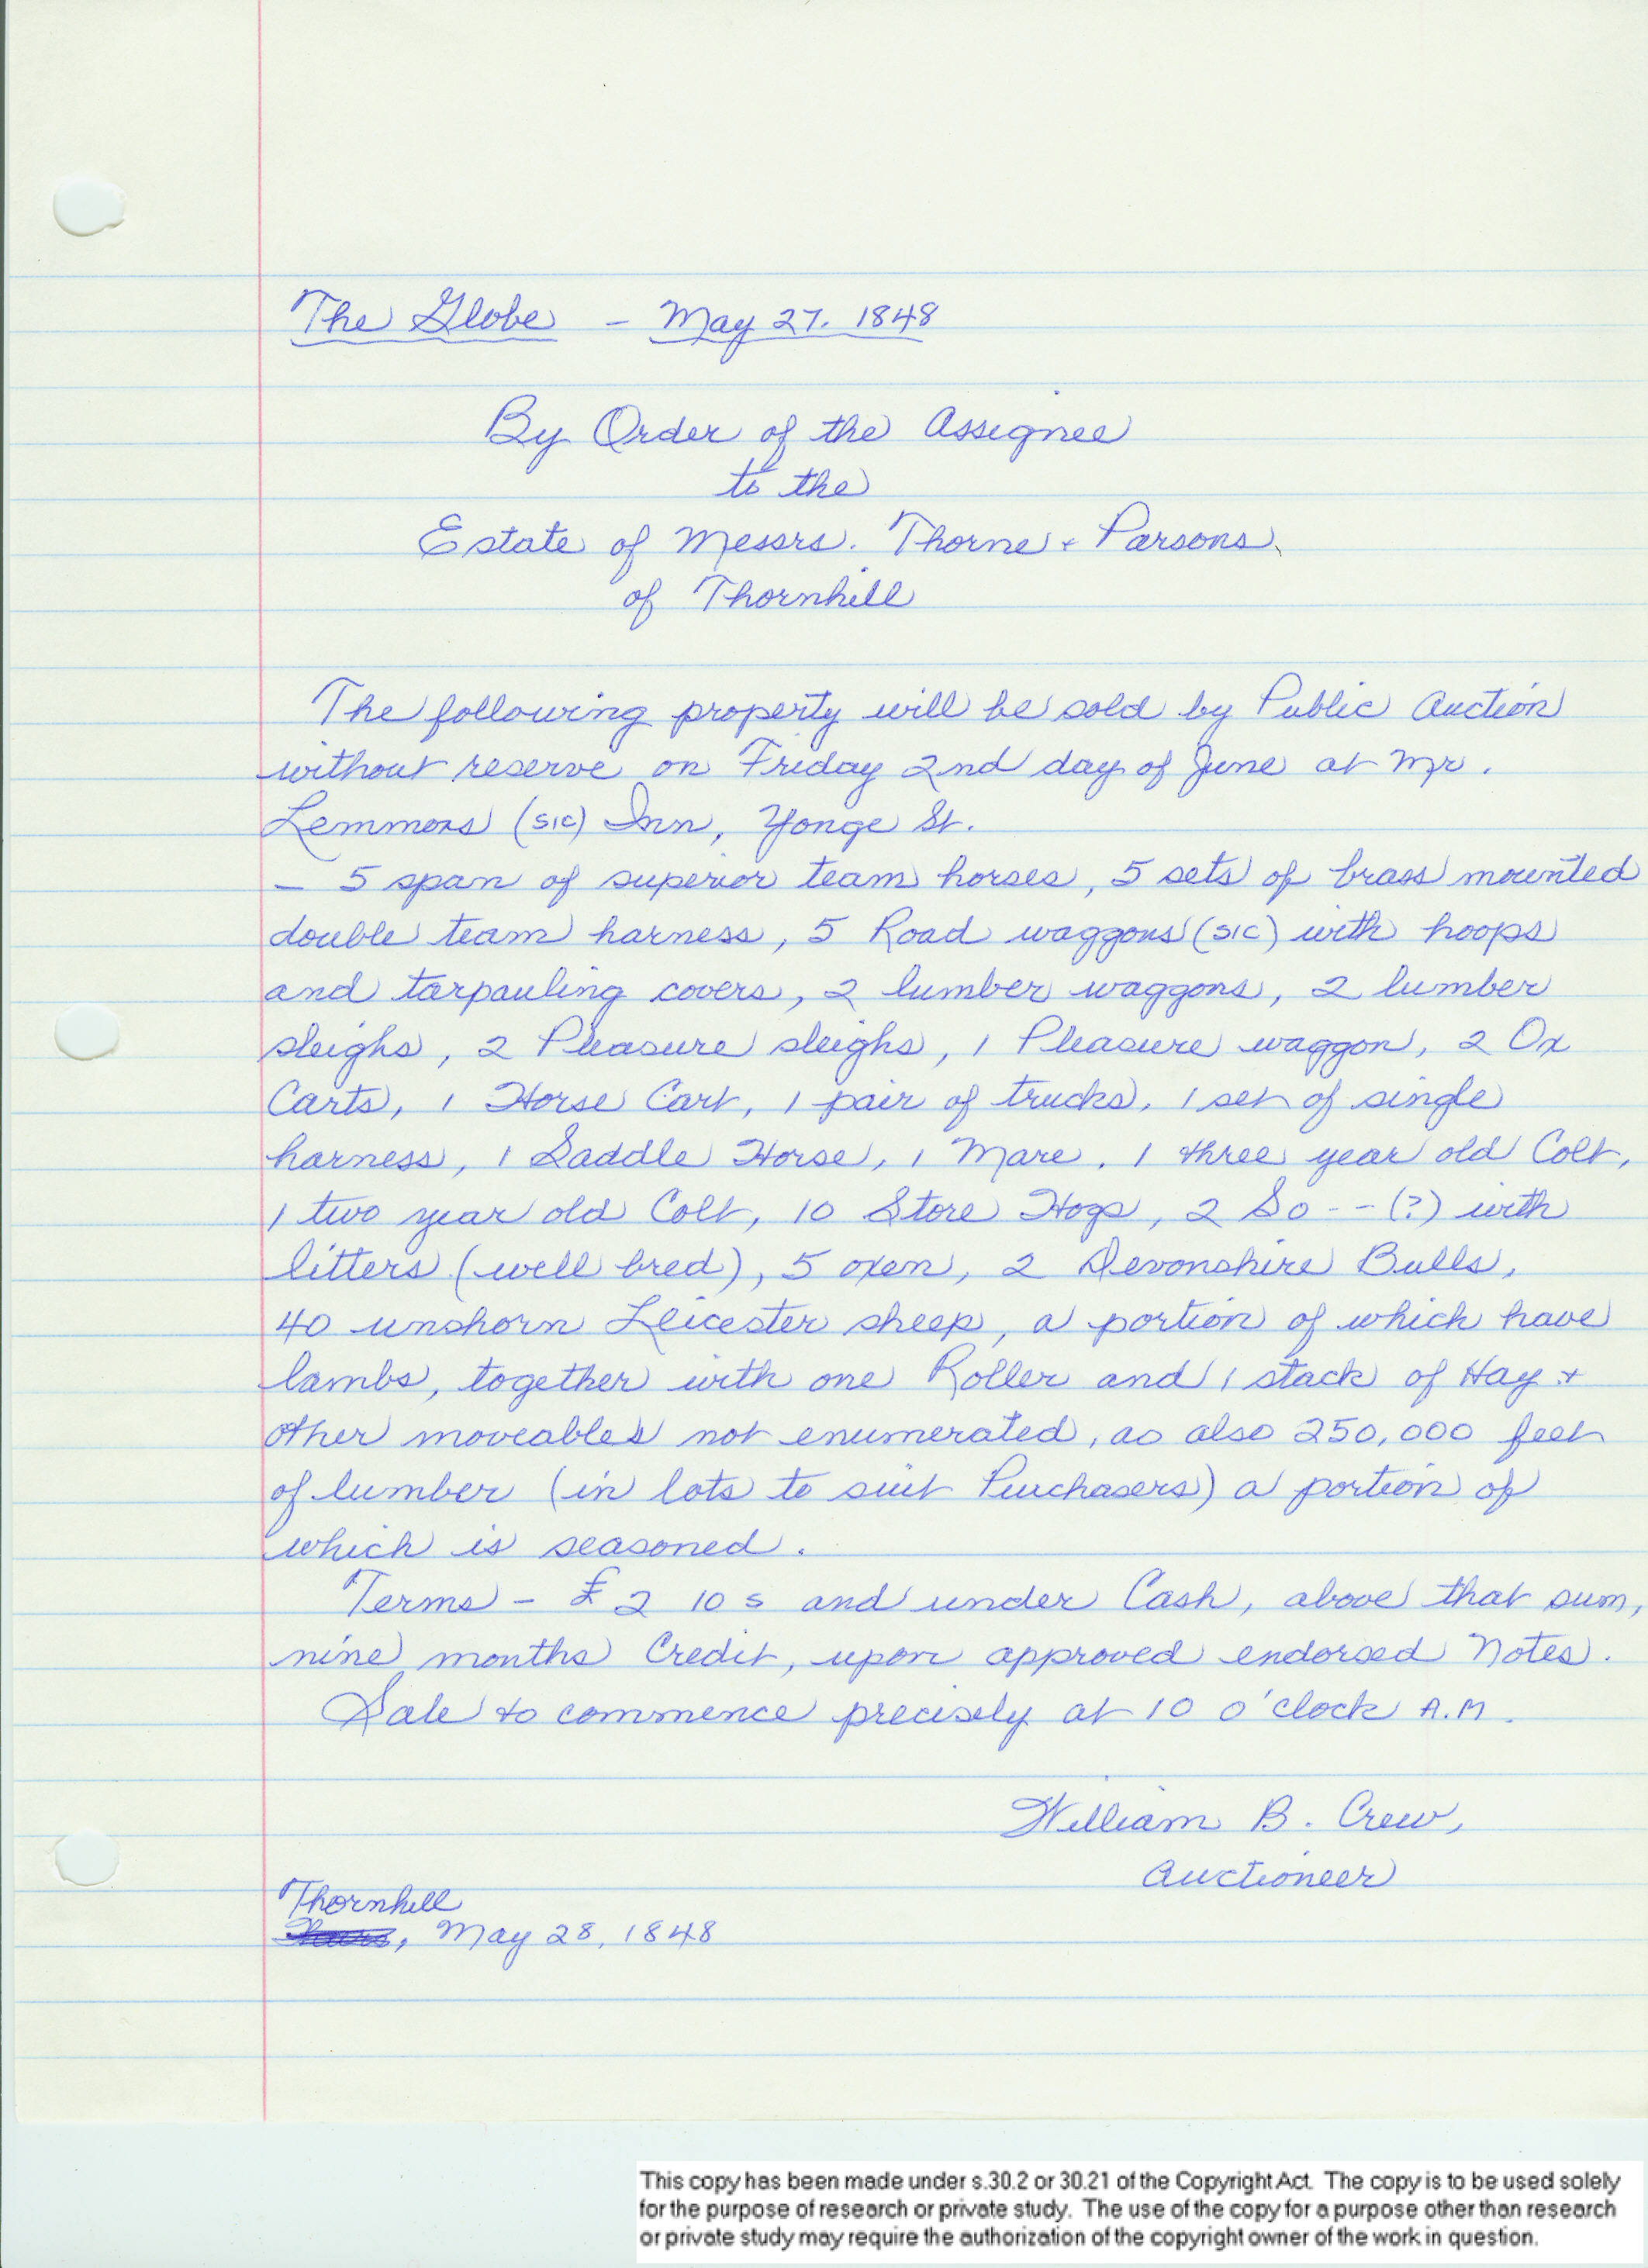 The Globe - May 27. 1848
By Order of the Assignee
to the
Estate of Messrs. Thorne + Parsons,
of Thornhill
The following property will be sold by Public Auction
without reserve on Friday 2nd day of June at Mr.
Lemmons (sic) Inn, Yonge St.
- 5 span of superior team horses, 5 sets of brass mounted
double team harness, 5 Road waggons (sic) with hoops
and tarpauling covers, 2 lumber waggons, 2 lumber
sleighs, 2 Pleasure sleighs, 1 Pleasure waggon, 2 Ox
Carts, 1 Horse Cart, 1 pair of trucks, 1 set of single
harness, 1 Saddle Horse, 1 Mare, 1 three year old Colt,
1 two year old Colt, 10 Store Hogs, 2 So-- (?) with
litters (well bred), 5 oxen, 2 Devonshire Bulls,
40 unshorn Leicester sheep, a portion of which have
lambs, together with one Roller and 1 stack of Hay +
other moveables not enumerated, as also 250,000 feet
of lumber (in lots to suit Purchasers) a portion of
which is seasoned.
Terms - £2 10s and under Cash, above that sum,
nine months Credit, upon approved endorsed Notes.
Sale to commence precisely at 10 o'clock A.M.
William B. Crew,
Auctioneer
Thornhill
, May 28, 1848
This copy has been made under s.30.2 or 30.21 of the Copyright Act. The copy is to be used solely
for the purpose of research or private study. The use of the copy for a purpose other than research
or private study may require the authorization of the copyright owner of the work in question.